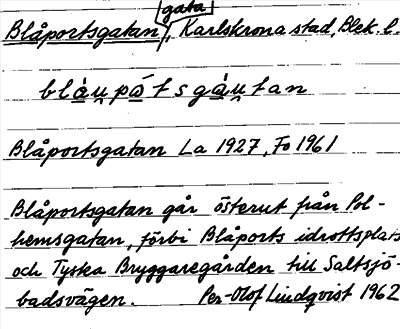 gata
Blåportsgatan, Karlskrona stad, Blek. l.
blàu̯påtsgàu̯tan
Blåportsgatan La 1927, Fo 1961
Blåportsgatan går österut från Pol-
hemsgatan, förbi Blåports idrottsplats
och Tyska Bryggaregården till Saltsjö-
badsvägen. Per-Olof Lindqvist 1962